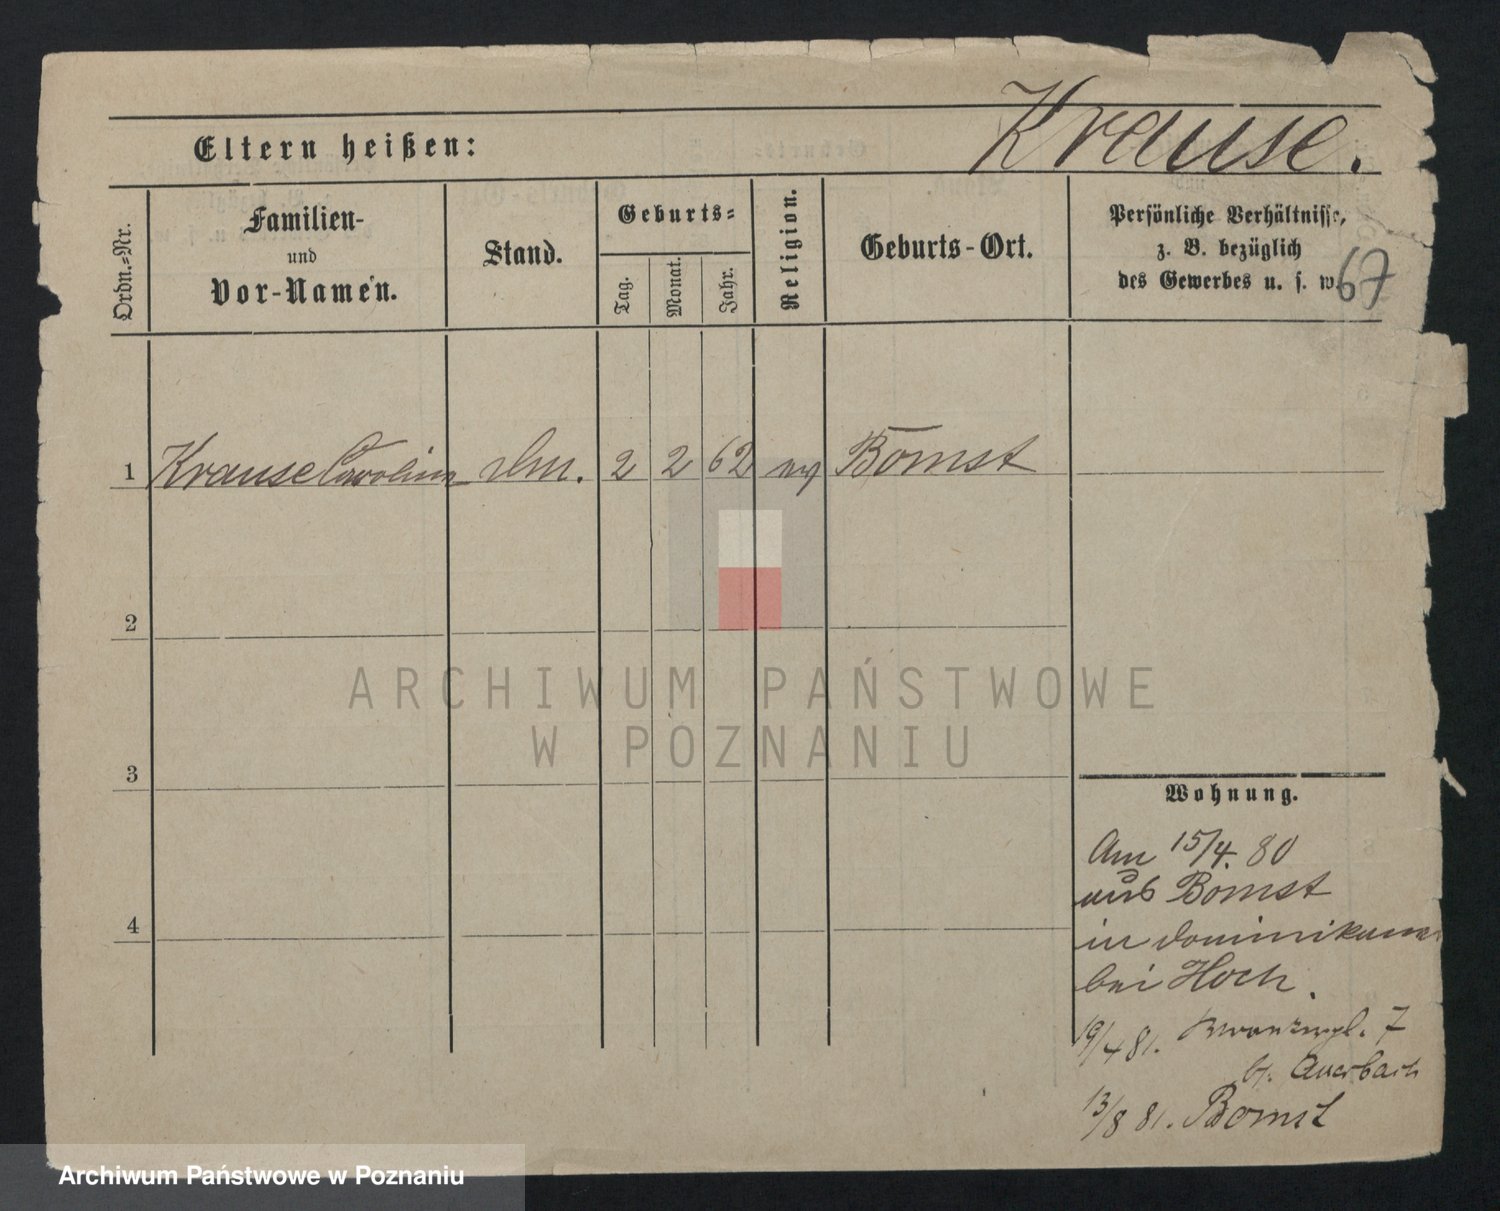 Krause.
Eltern heißen:
Ordn.=Nr.
Familien-
und
Vor-Namen.
Stand.
Geburts=
Tag.
Monat.
Jahr.
Religion.
Geburts-Ort.
Persönliche Verhältnisse,
z. B. bezüglich
des Gewerbes u. s. w.
67
1 Krause Carolina 2 2 62 Bomst
2
3
4
ARCHIWUM PAŃSTWOWE
W POZNANIU
Wohnung.
Am 15/4. 80
aus Bomst
in dominikaner
bei Hoch.
19/4 81. 7
b. Auerbach
13/8 81. Bomst
Archiwum Państwowe w Poznaniu